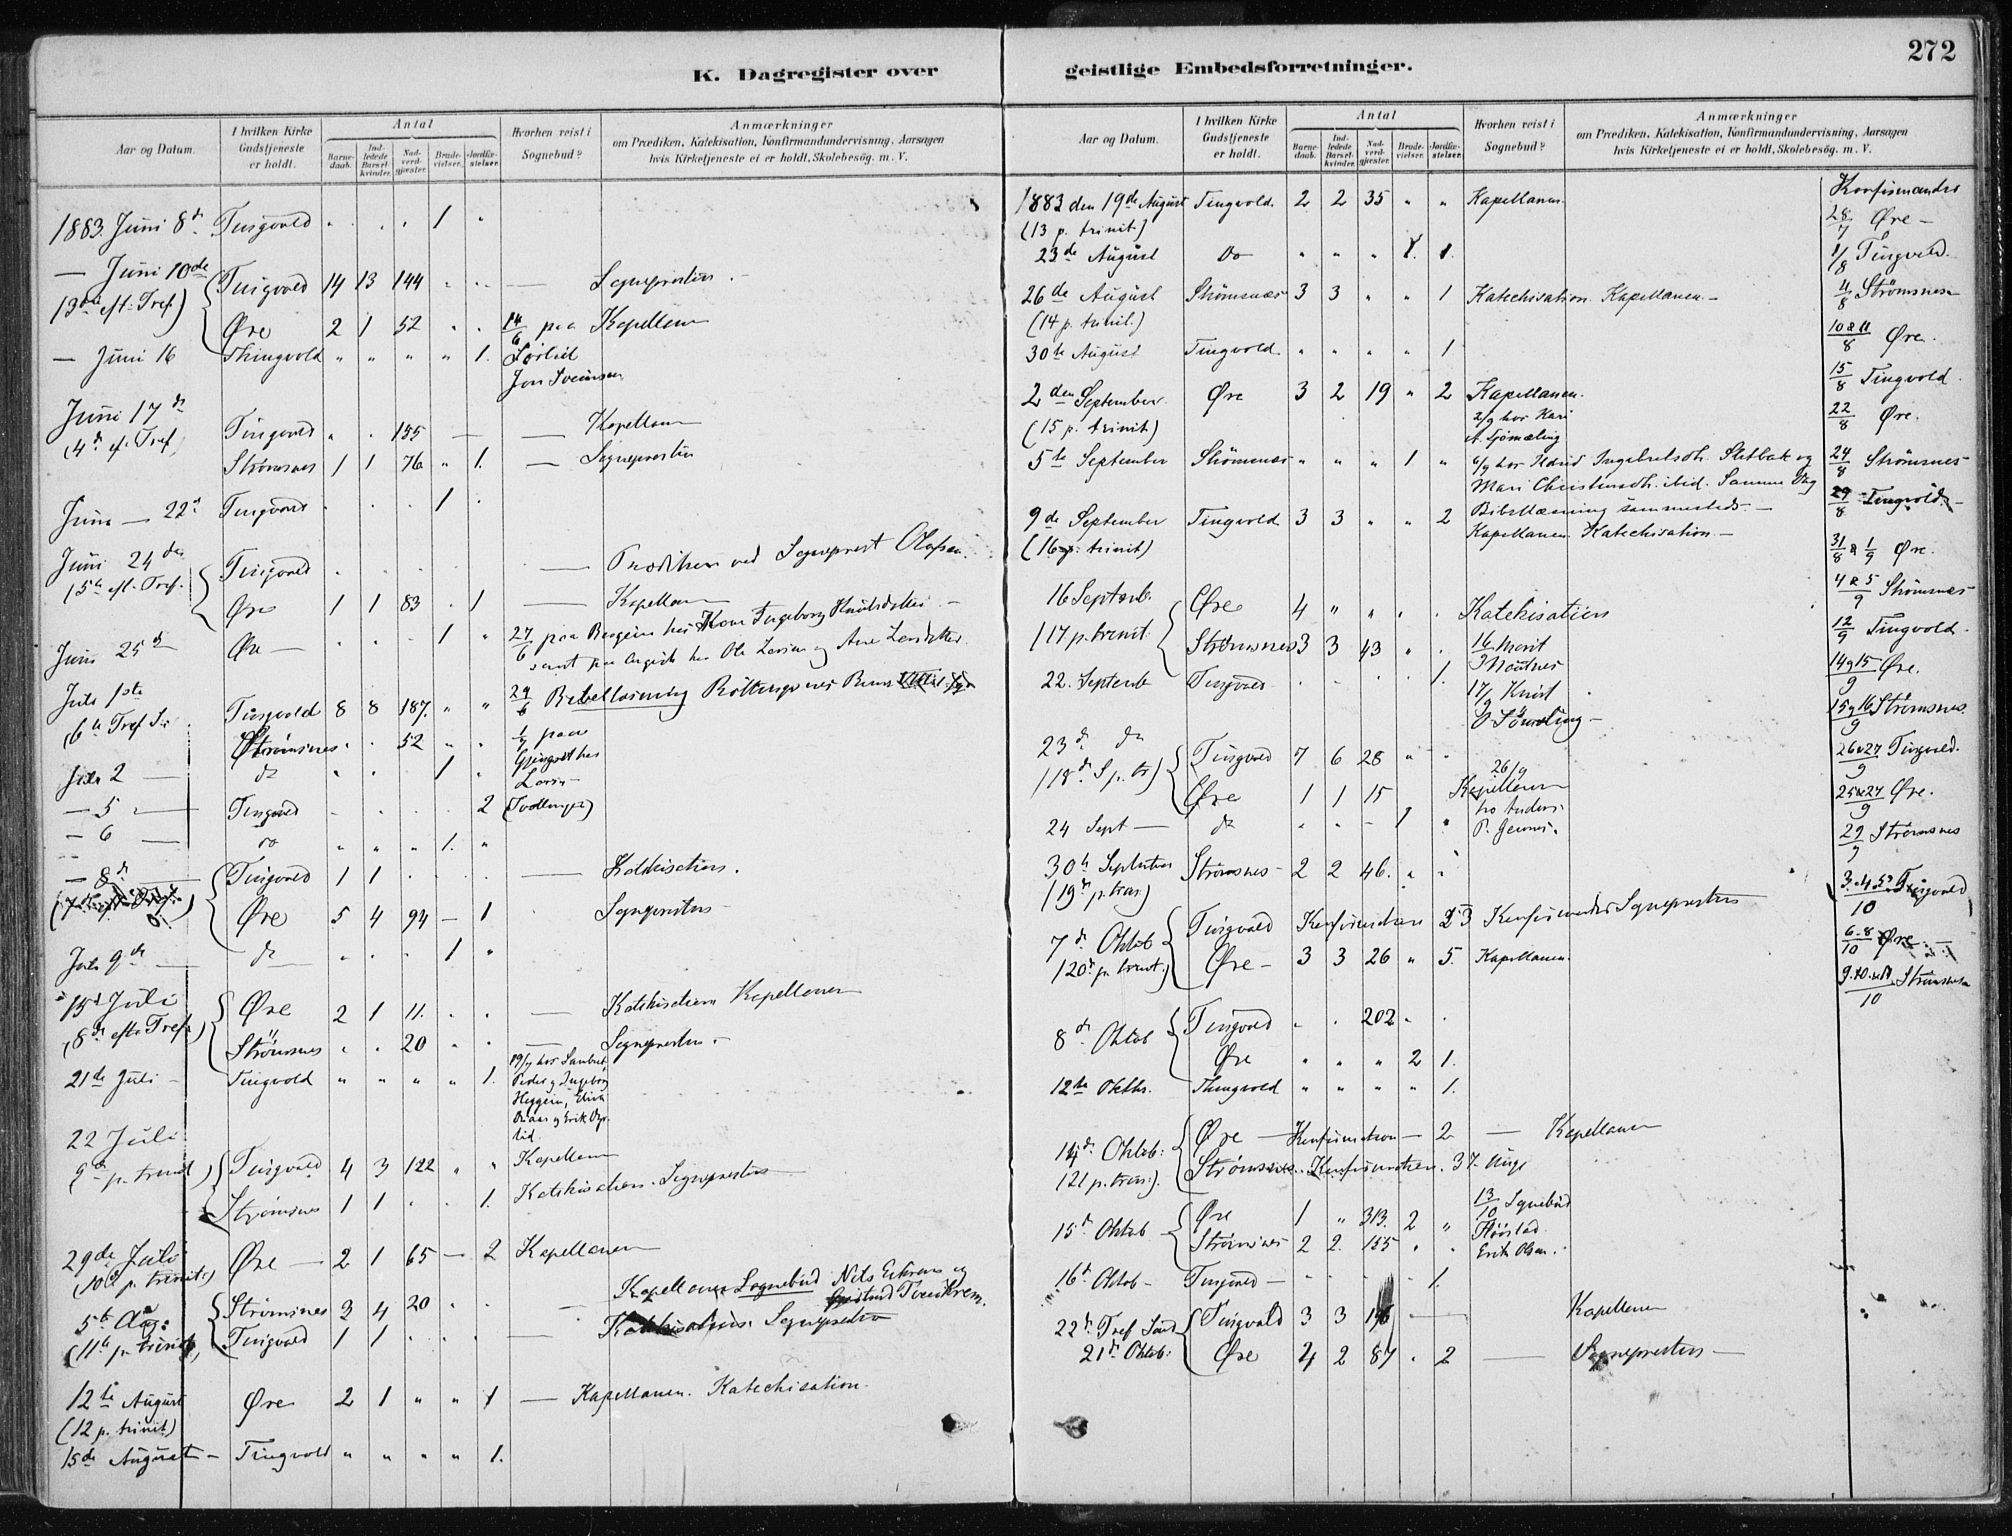 272
K. Dagregister over geistlige Embedsforretninger.
Aar og Datum.
I hvilken Kirke Gudstjeneste er holdt.
Antal
Barnedaab.
Indledede Barselkvinder.
Nadverdgjester.
Brudevielser.
Jordfæstelser.
Hvorhen reist i Sognebud?
Anmærkninger
om Prædiken, Katekisation, Konfirmandundervisning, Aarsagen
hvis Kirketjeneste ei er holdt, Skolebesög. m. V.
1883. Juni 8d Tingvold " . . . 1 "
— Juni 10de Tingvold 14 13 144 " " — Sognepresten. -
(3die eft. Tref.)
Øre 2 1 52 . . 14/6 paa Kapellanen
— Juni 16 Thingvold " " " " 1.
Jon Sveinsen
Juni 17d
(4d ef. Tref) Tingvold " . 155 — — Kapellanen
Strømsnes 1 1 76 " 1. — Sognepresten
Juni — 22d Tingvold . . . 1 .
Juni 24de Tingvold . . . . . — Prædiken ved Sogneprest Olafsen.
(5te eft. Tref.
Øre 1 1 83 . 1 — Kapellanen
Juni 25d Øre — . . . 1 " 27/6 paa Bergein hos Kone Ingeborg Knutsdatter. -
Juli 1ste 29/6 Bibellæsning
(6te Tref S. Tingvold 8 8 187. " "
Strømsnes . . 52 " " 1/7 paa
Juli 2 — do " " . 1 "
— 5 — Tingvold - . . . 2
— 6 — do " " " 1. "
— 8d — Tingvold 1 1 . . . — Katekisation.
Øre 5 4 94 — 1 . Sognepresten —
Juli 9de — do " . . 1 "
15d Juli Øre 2 1 11. . . — Katekisation Kapellanen
(8de efter Tref.)
Strømsnes " . 20 " . — Sognepresten. -
21de Juli - Tingvold " " " " 1. 19/7 hos
Peder og Ingeborg
Heggein, Erik
22 Juli
9de p. trinit) Tingvold 4 3 122 " " Kapellanen
Strømsnes 1 1 . . 1. Katekisation. Sognepresten
29de Juli Øre — 2 1 65 — 2 Kapellanen
(10d p. trinit.)
5te Aug: Strømsnes 3 4 20 . . — Kapellanen Sognebud Nils
(11te p. trinit) Tingvold 1 1 . . . — Katekisation. Sognepresten
12te August Øre 2 1 " " 1 — Kapellanen. Katechisation.
(12 p. trinit)
15de August - Tingvold " " " " 1.
Aar og Datum.
I hvilken Kirke Gudstjeneste er holdt.
Antal
Barnedaab.
Indledede Barselkvinder.
Nadverdgjester.
Brudevielser.
Jordfæstelser.
Hvorhen reist i Sognebud?
Anmærkninger
om Prædiken, Katekisation, Konfirmandundervisning, Aarsagen
hvis Kirketjeneste ei er holdt, Skolebesög. m. V.
1883 den 19de August Tingvold. 2 2 35 " " Kapellanen.
(13 p. trinit)
23de August Do " " " 1. 1.
26de August Strømsnæs 3 3 " " 1 Katechisation. Kapellanen. -
(14 p. trinit.)
30te August Tingvold. " " " " 1
2den September Øre 3 2 19 " 2 Kapellanen.
(15 p. trinit) 2/9 hos Kari
5te September Strømsnæs " " " 1 " 6/9 hos
Mari Christensdt. ibid. Samme Dag
Bibellæsning sammesteds. -
9de September Tingvold 3 3 " " 2 Kapellanen Katechisation. -
(16 p. trinit)
16 Septemb. Øre 4 " " . . Katekisation
(17 p. trinit. Strømsnes 3 3 43 " . 16/9 Marit
22. Septemb Tingvold . . . . 1. 17/9 Knut
23d do Tingvold 7 6 28 " "
(18d S p. tr) 26/9
Øre 1 1 15 Kapellanen
24 Sept — do " " - 1 "
30te September Strømsnes - 2 2 46. " "
(19d p. trin:)
7d Oktob Tingvold Konfirmation 23 Konfirmander Sognepresten
(20d p. trinit.) Øre - 3 3 26 " 5. Kapellanen.
8d Oktob Tingvold " . 202 " .
Øre " " " 2 1.
12te Oktbr. Thingvold " " " " 1.
14d Oktob: Øre — Konfirmation — 2 — Kapellanen
(21 p. trin:). Strømsnes. Konfirmation. 37. Unge
15d Oktob Øre 1 " 313. 2 " 13/10 Sognebud
Strømsnes 2 2. 155 " "
Erik Olsen.
16d Oktob - Tingvold — - . . . 1.
22d Tref Sønd Tingvold 3 3 196 — Kapellanen
21d Oktob: Øre 4 2 87 . 2 — Sognepresten —
Konfirmander
28/7 Øre -
1/8 Tingvold.
4/8 Strømsnes
10 & 11/8 Øre.
15/8 Tingvold.
22/8 Øre.
24/8 Strømsnes
29/8 Tingvold. -
31/8 & 1/9 Øre.
4 & 5/9 Strømsnes
12/9 Tingvold.
14 & 15/9 Øre.
15 & 16/9 Strømsnes.
26 & 27/9 Tingvold.
Øre.
29/9 Strømsnes
Tingvold
6-8/10 Øre
Strømsnes